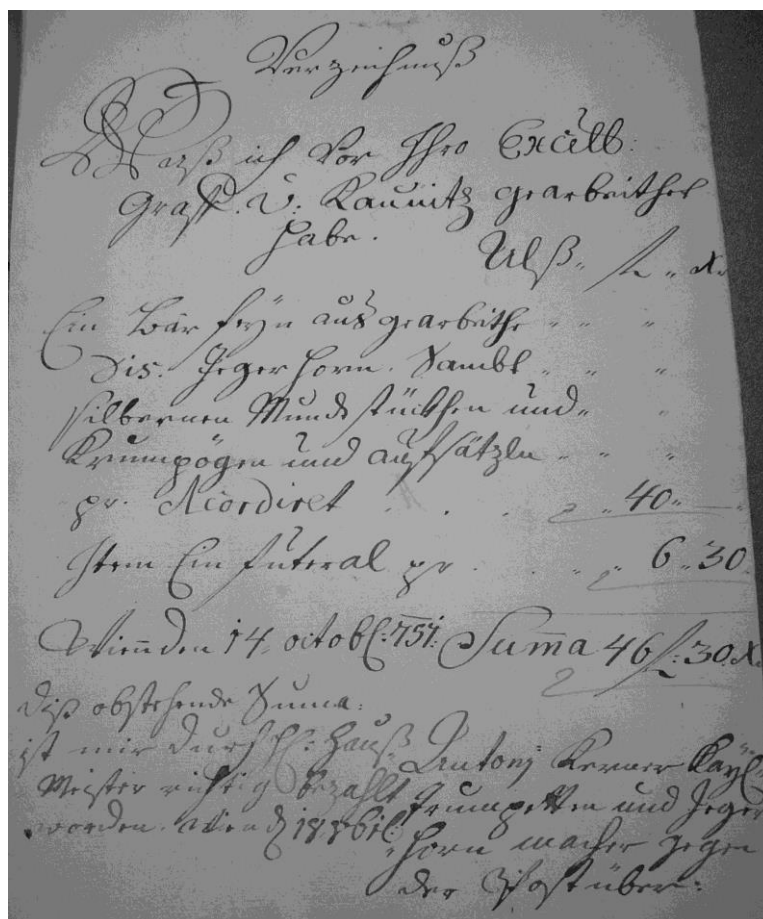 Verzeichnuß
Waß ich vor Ihro Excell:
Graff. v: Kaunitz gearbeithet
habe.
Alß„ f „ x„
Ein bar feyn aus gearbeithe „ „ „
Dis. Jeger horn. Sambt „ „ „
silbernen Mundt stückhen und „ „
Krumpögen und aufsätzln „ „ „
pr. Acordiret . . . „ „ 40 „
Item Ein futeral pr . . „ „ 6 „ 30
Wienn den 14. octobl: 757: Suma 46 f: 30 x.
diß obstehende Suma:
ist mir durch H: Hauß
Meister richtig bezahlt
worden. Wien 18 8bil:
Antonj Kerner Kayl:
Trumpetten und Jeger
horn macher gegen
der Post über: